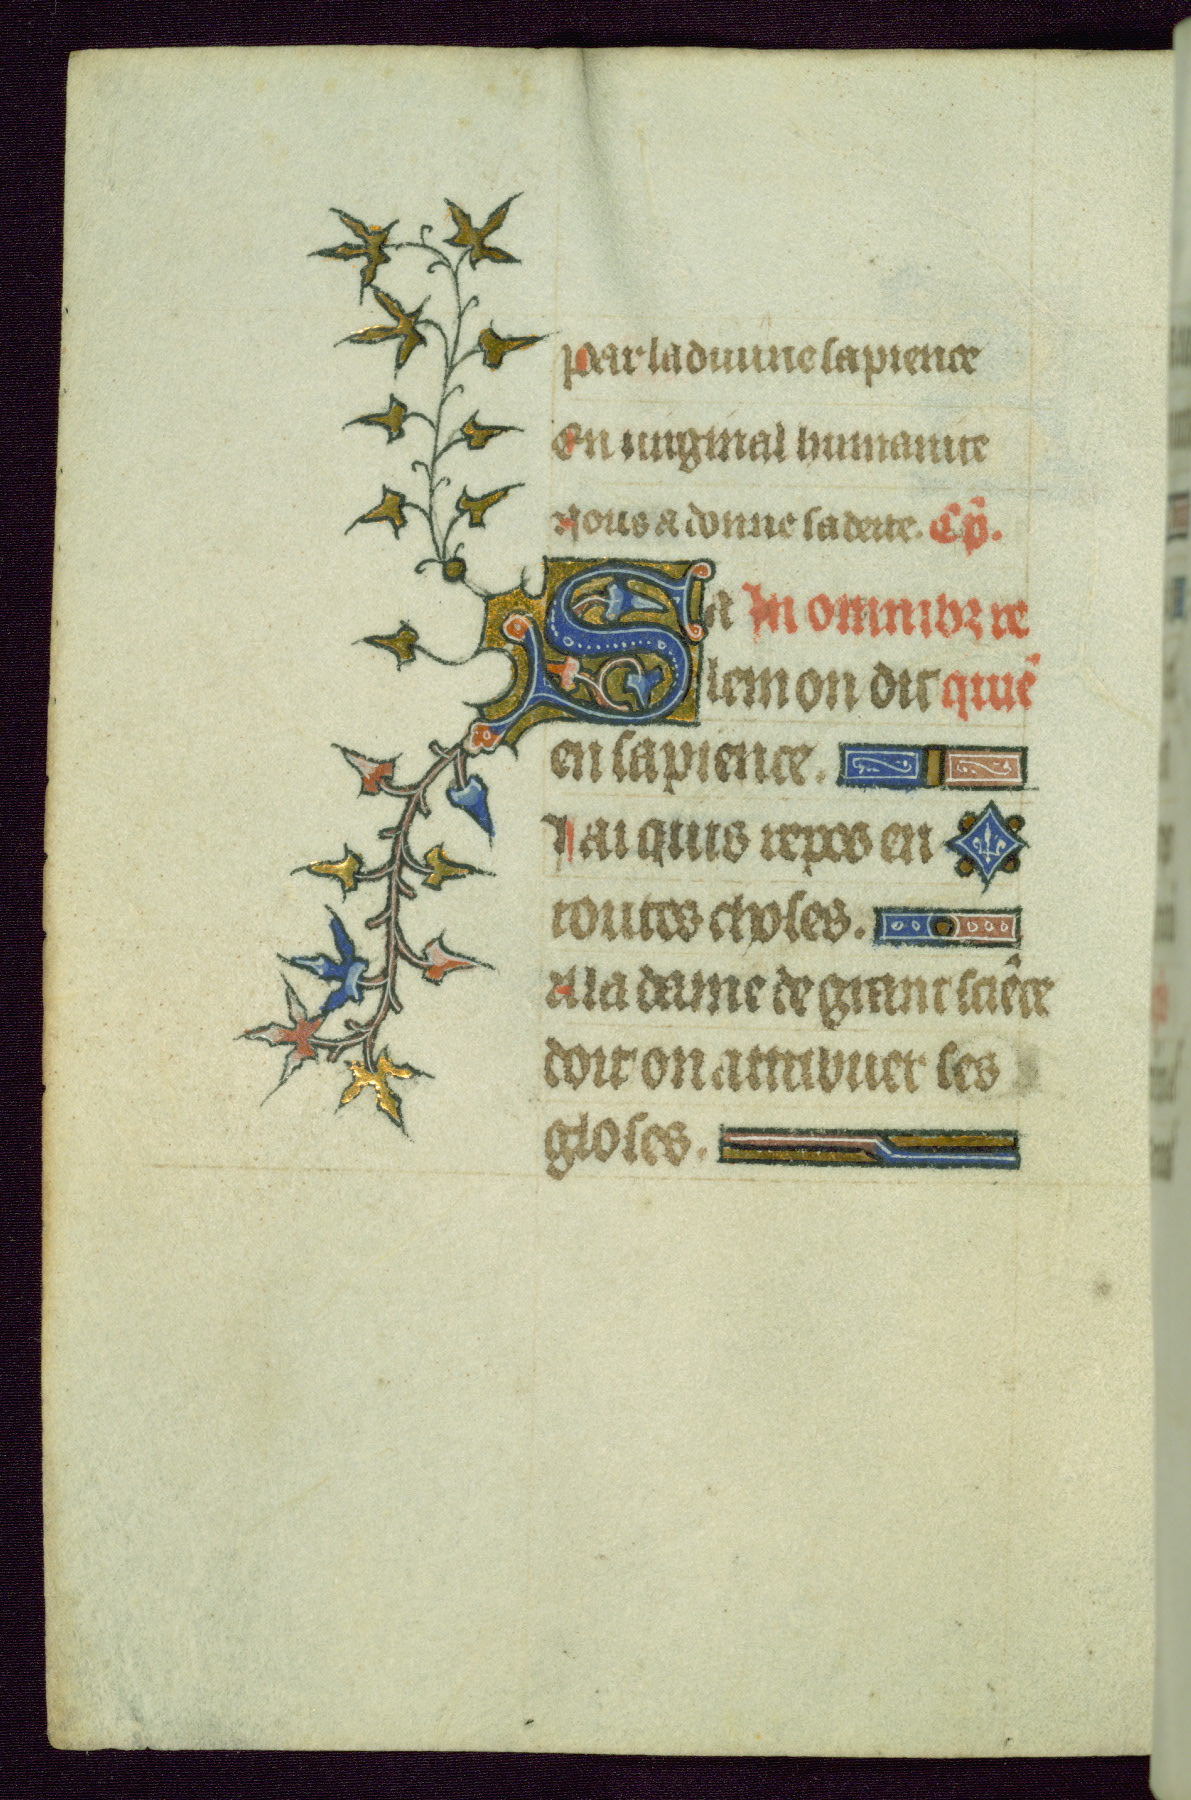 par la diuine sapience
En uirginal humanite
Nous a donne sa deite. Cp̄.
Sa In omnibꝫ re
lemon dit quiē
en sapience.
Iai quis repos en
toutes choses.
A la dame de grant sciēce
doit on attribuer les
gloses.